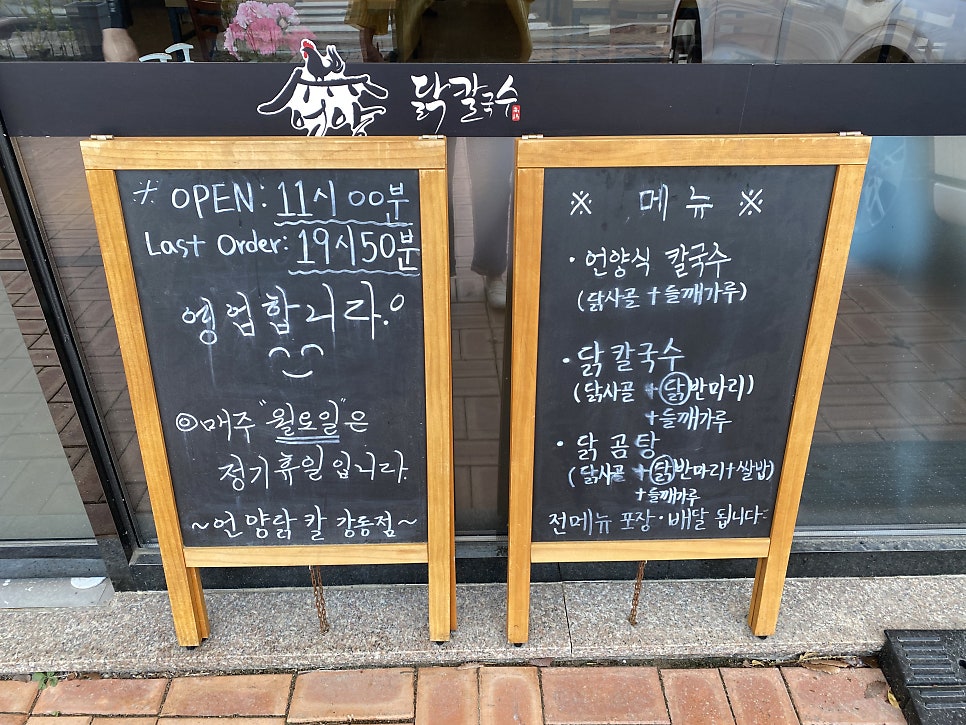 언양
닭칼국수
OPEN: 11시 00분
Last Order: 19시50분
영업합니다.
◎매주 "월요일"은
정기휴일입니다.
~언양닭칼 강동점~
※ 메뉴 ※
· 언양식 칼국수
(닭사골 + 들깨가루)
· 닭칼국수
(닭사골 + 닭반마리)
+들깨가루
· 닭곰탕
(닭사골 + 닭반마리+쌀밥)
+들깨가루
전메뉴 포장·배달 됩니다~